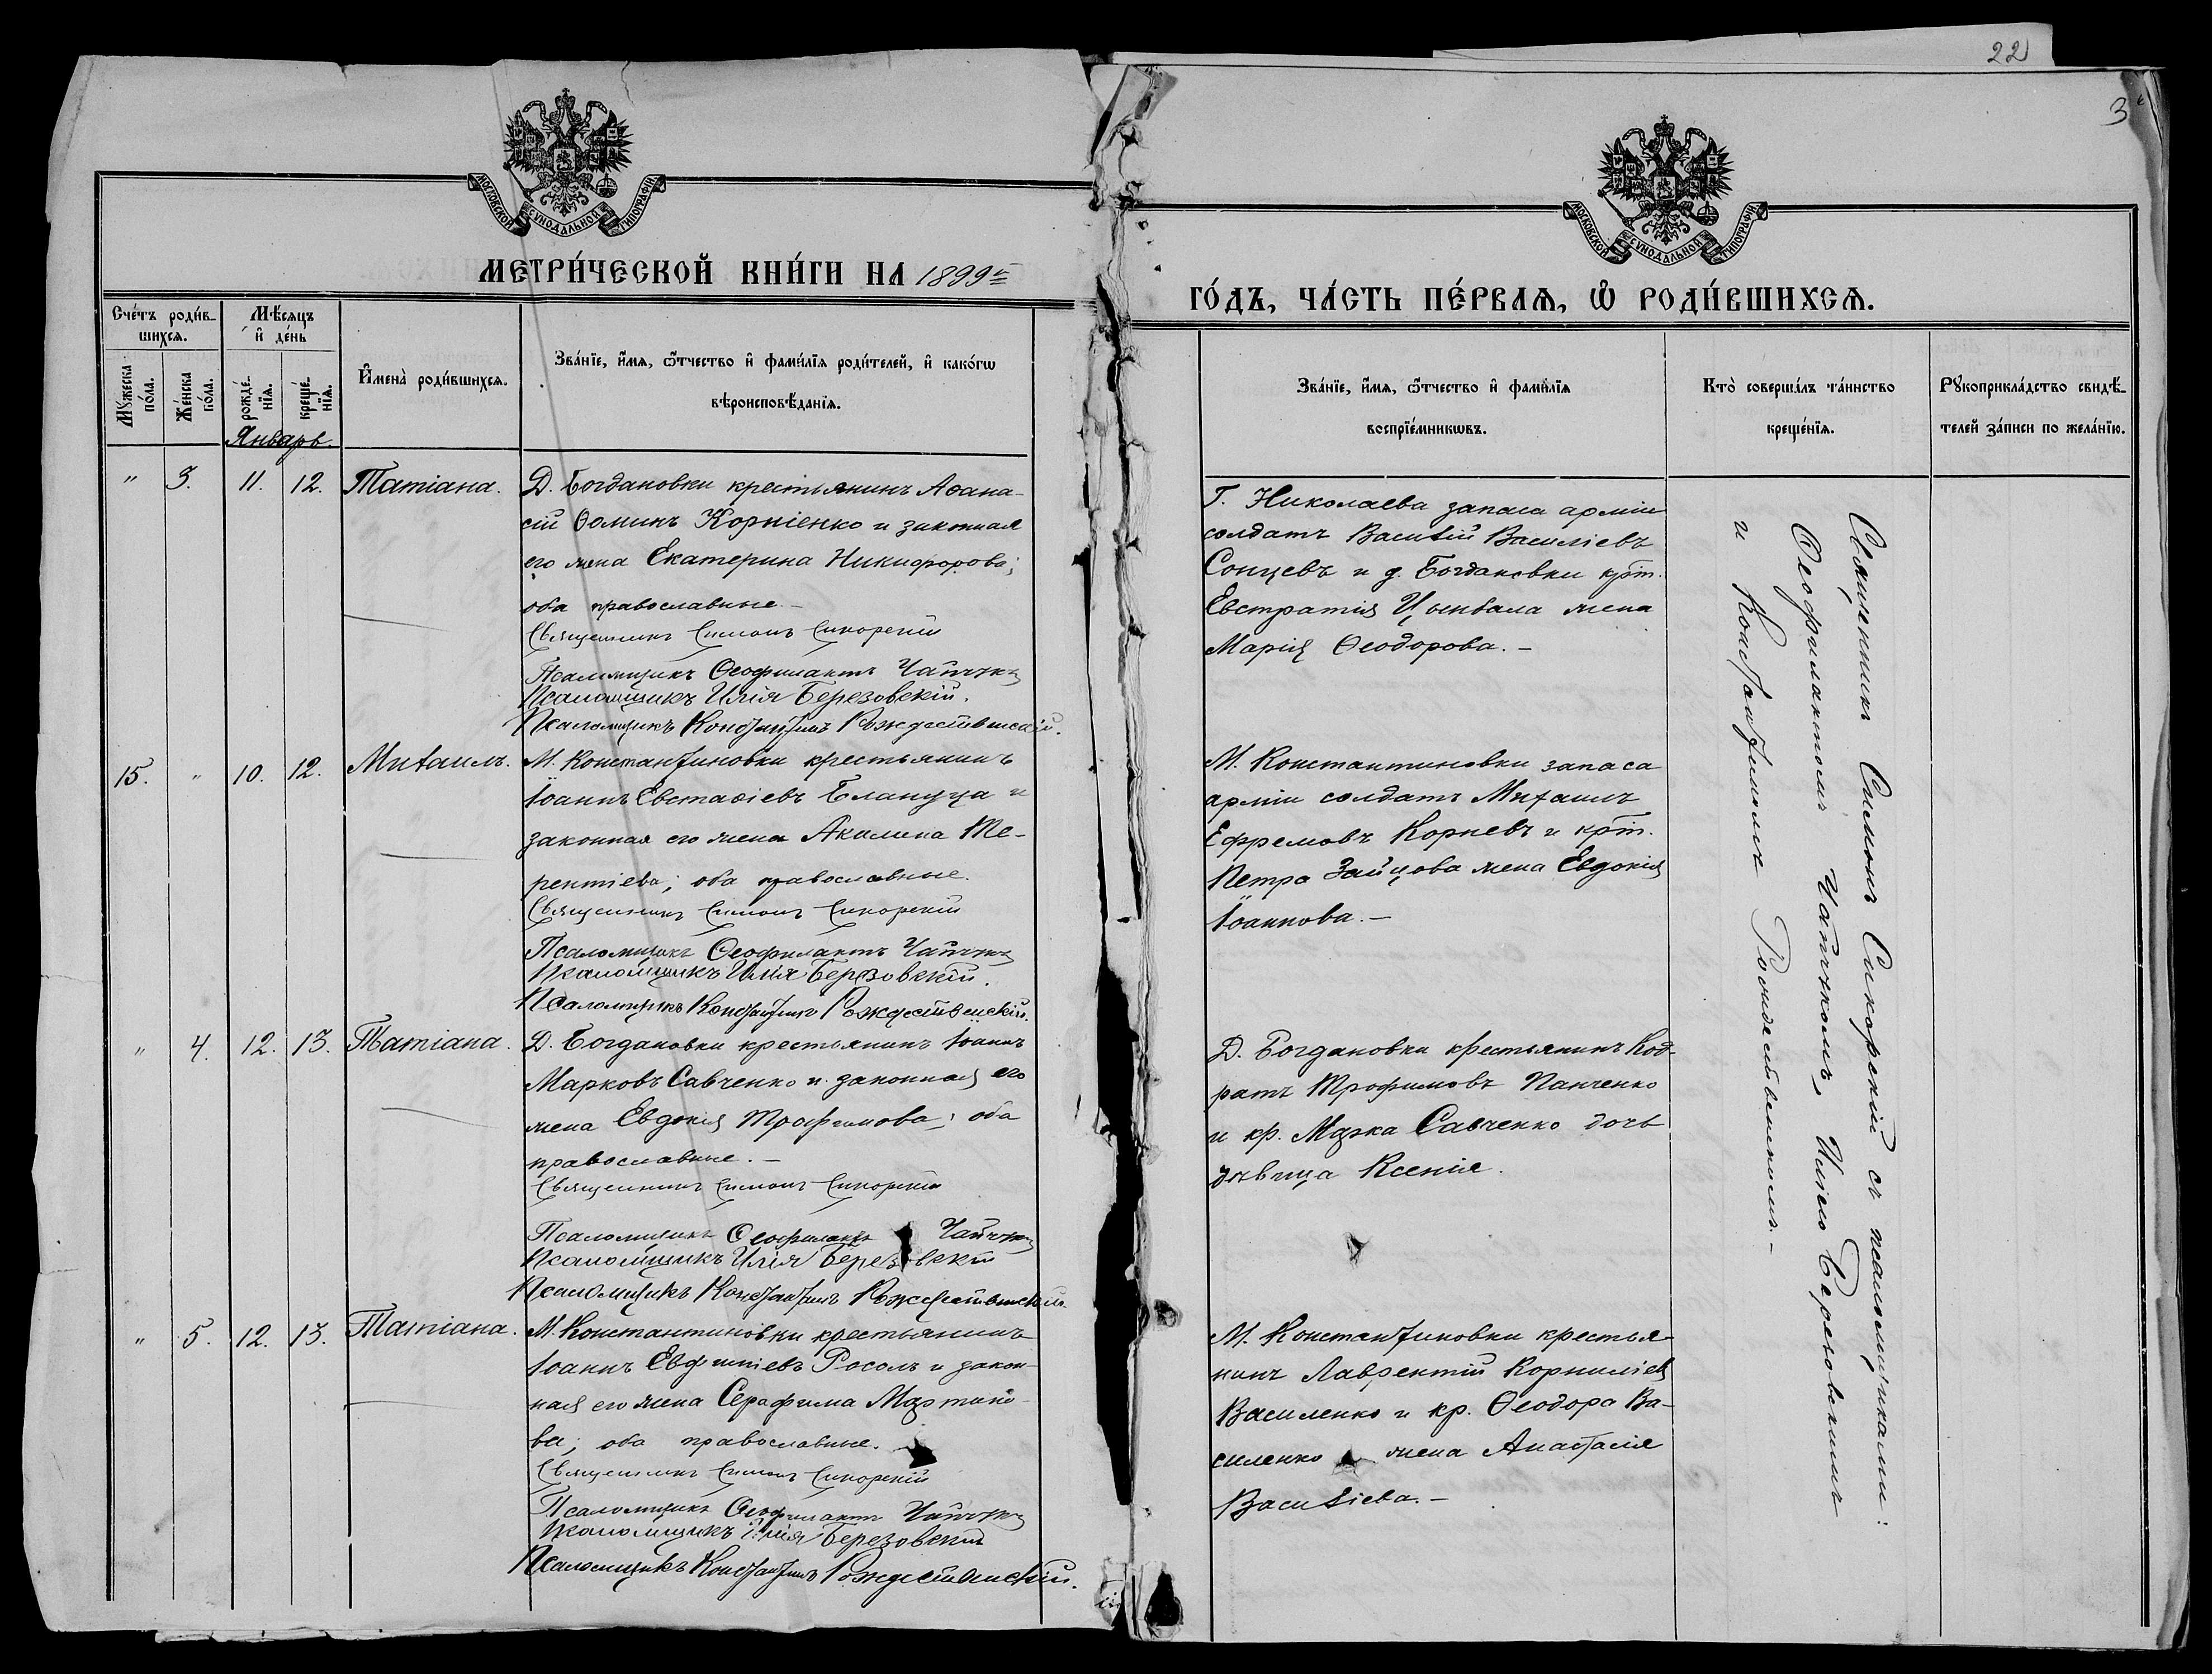 22
3
МОСКОВСКОЙ СУНОДАЛЬНОЙ ТИПОГРАФІИ
МОСКОВСКОЙ СУНОДАЛЬНОЙ ТИПОГРАФІИ
МЕТРИ́ЧЕСКОЙ КНИ́ГИ НА 1899 г.
ГО́ДЪ, ЧА́СТЬ ПЕ́РВАЯ, Ѡ РОДИ́ВШИХСѦ.
Сче́тъ роди́в-
шихсѧ.
Мꙋжеска по́ла.
Же́нска по́ла.
Мѣ́сѧцъ
и҆ де́нь
рожде́-
нїѧ.
креще́-
нїѧ.
Январь.
И҆мена̀ роди́вшихсѧ.
Зва́нїе, и҆́мѧ, ѻ҆́тчество и҆ фами́лїѧ роди́телей, и҆ како́гѡ
вѣроисповѣ́данїѧ.
Зва́нїе, и҆́мѧ, ѻ҆́тчество и҆ фами́лїѧ
воспрїе́мникѡвъ.
Кто̀ соверша́лъ та́инство
креще́нїѧ.
Рꙋкоприкла́дство свидѣ́-
телей за́писи по жела́нїю.
" 3. 11. 12. Татіана.
Д. Богдановки крестьянинъ Аѳана-
сій Ѳоминъ Корніенко и законная
его жена Екатерина Никифорова;
оба православные. –
Священникъ Симонъ Сикорскій
Псаломщикъ Ѳеофилактъ
Псаломщикъ Илія Березовскій.
Псаломщикъ Константинъ Рождественскій.
Г. Николаева запаса арміи
солдатъ Василій Василіевъ
Сонцевъ и д. Богдановки крт.
Евстратія Цымбала жена
Марія Ѳеодорова. –
15. " 10. 12. Михаилъ.
М. Константиновки крестьянинъ
Іоаннъ Евстафіевъ Блануца и
законная его жена Акилина Те-
рентіева; оба православные.
Священникъ Симонъ Сикорскій
Псаломщикъ Ѳеофилактъ
Псаломщикъ Илія Березовскій.
Псаломщикъ Константинъ Рождественскій.
М. Константиновки запаса
арміи солдатъ Михаилъ
Ефремовъ Корневъ и крт.
Петра Зайцова жена Евдокія
Іоаннова. –
" 4. 12. 13. Татіана.
Д. Богдановки крестьянинъ Іоаннъ
Марковъ Савченко и законная его
жена Евдокія Трофимова; оба
православные. –
Священникъ Симонъ Сикорскій
Псаломщикъ Ѳеофилактъ
Псаломщикъ Илія Березовскій
Псаломщикъ Константинъ Рождественскій.
Д. Богдановки крестьянинъ Код-
ратъ Трофимовъ Панченко
и кр. Марка Савченко дочь
дѣвица Ксенія.
" 5. 12. 13. Татіана.
М. Константиновки крестьянинъ
Іоаннъ Евфиміевъ Росолъ и закон-
ная его жена Серафима Мартино-
ва; оба православные.
Священникъ Симонъ Сикорскій
Псаломщикъ Ѳеофилактъ
Псаломщикъ Илія Березовскій
Псаломщикъ Константинъ Рождественскій.
М. Константиновки крестья-
нинъ Лаврентій Корниліевъ
Василенко и кр. Ѳеодора Ва-
силенко жена Анастасія
Василіева. –
Священникъ Симонъ Сикорскій съ псаломщиками:
Ѳеофилактомъ Иліею Березовскимъ
и Константиномъ Рождественскимъ. –